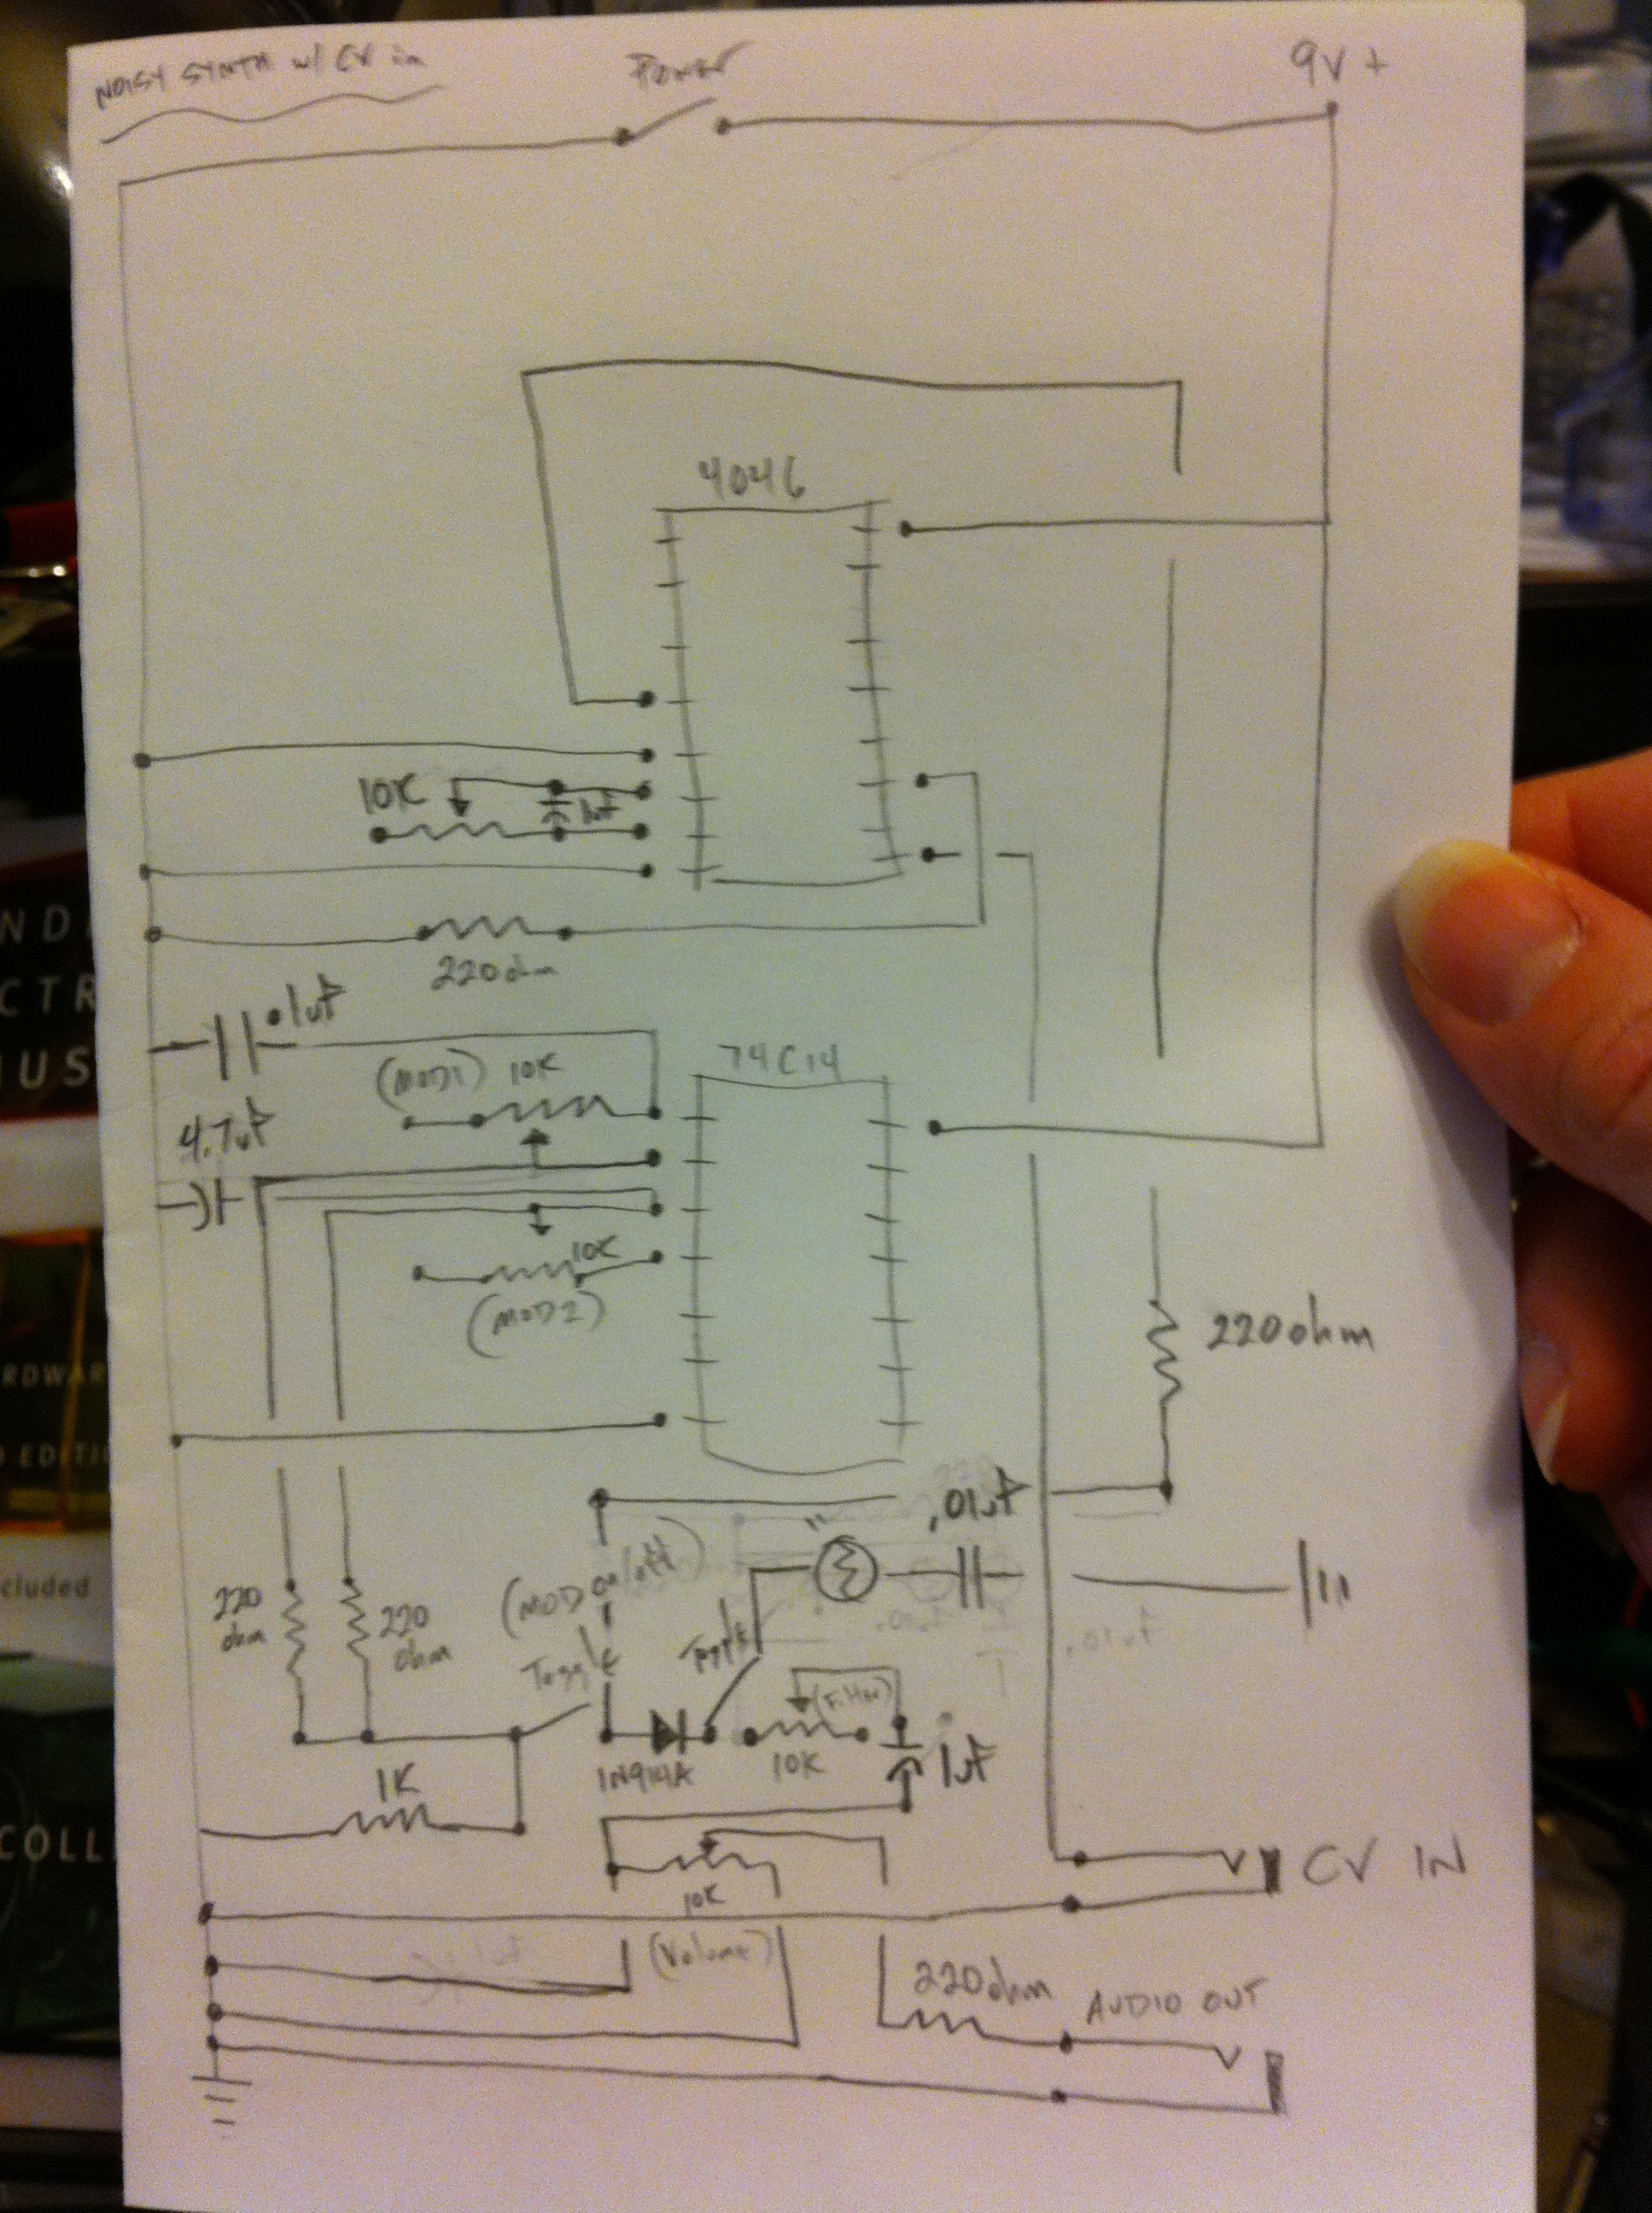 NOISY SYNTH w/ CV in
Power
9V +
4046
10K
1uF
220ohm
.1uF
(MOD1) 10K
74C14
4.7uF
10K
(MOD2)
220ohm
.01uF
(MOD on/off)
Toggle
Toggle
220
ohm
220
ohm
(Filter)
1K
1N914A
10K
1uF
10K
(Volume)
CV IN
220ohm
AUDIO OUT
.01uF
ND
CTR
US
RDWAR
D EDITI
cluded
COLL